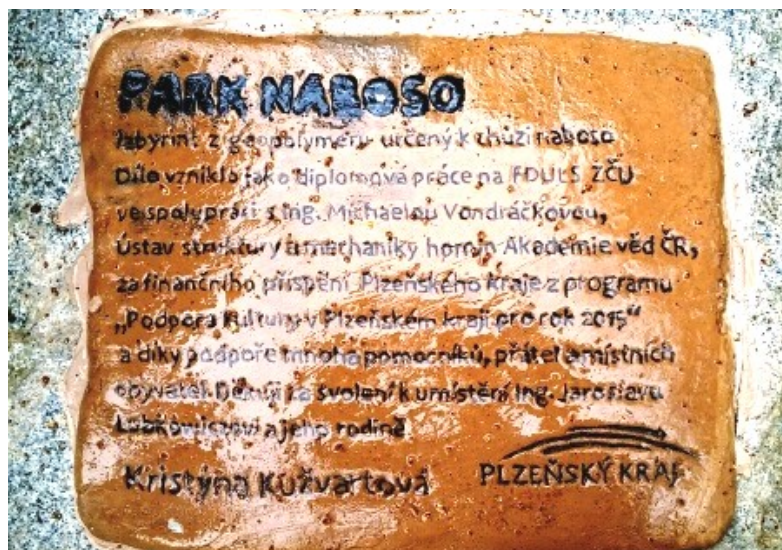 PARK NABOSO
labyrint z geopolymeru určený k chůzi naboso
Dílo vzniklo jako diplomová práce na FDULS ZČU
ve spolupráci s Ing. Michaelou Vondráčkovou,
Ústav struktury a mechaniky hornin Akademie věd ČR,
za finančního přispění Plzeňského kraje z programu
„Podpora kultury v Plzeňském kraji pro rok 2015“
a díky podpoře mnoha pomocníků, přátel a místních
obyvatel. Děkuji za svolení k umístění Ing. Jaroslavu
Lobkowiczovi a jeho rodině
Kristýna Kužvartová
PLZEŇSKÝ KRAJ